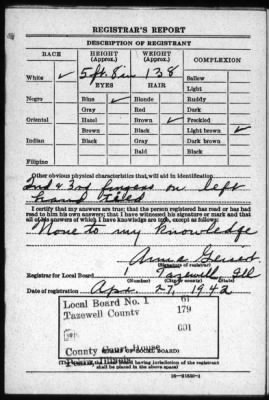 REGISTRAR'S REPORT
DESCRIPTION OF REGISTRANT
RACE HEIGHT (Approx.) WEIGHT (Approx.) COMPLEXION
White ✓ 5 ft. 8 in 138 Sallow
EYES HAIR Light
Negro Blue ✓ Blonde Ruddy
Gray Red Dark
Oriental Hazel Brown ✓ Freckled
Brown Black Light brown ✓
Indian Black Gray Dark brown
Bald Black
Filipino
Other obvious physical characteristics that will aid in identification
2nd & 3rd fingers on left
hand
I certify that my answers are true; that the person registered has read or has had
read to him his own answers; that I have witnessed his signature or mark and that
all of his answers of which I have knowledge are true, except as follows:
None to my knowledge
Anna
(Signature of registrar)
Registrar for Local Board 1 Tazewell Ill
(Number) (City or county) (State)
Date of registration Apr. 27, 1942
Local Board No. 1 61
Tazewell County 179
001
County Court House
(STAMP OF LOCAL BOARD)
having jurisdiction of the registrant
shall be placed in the above space)